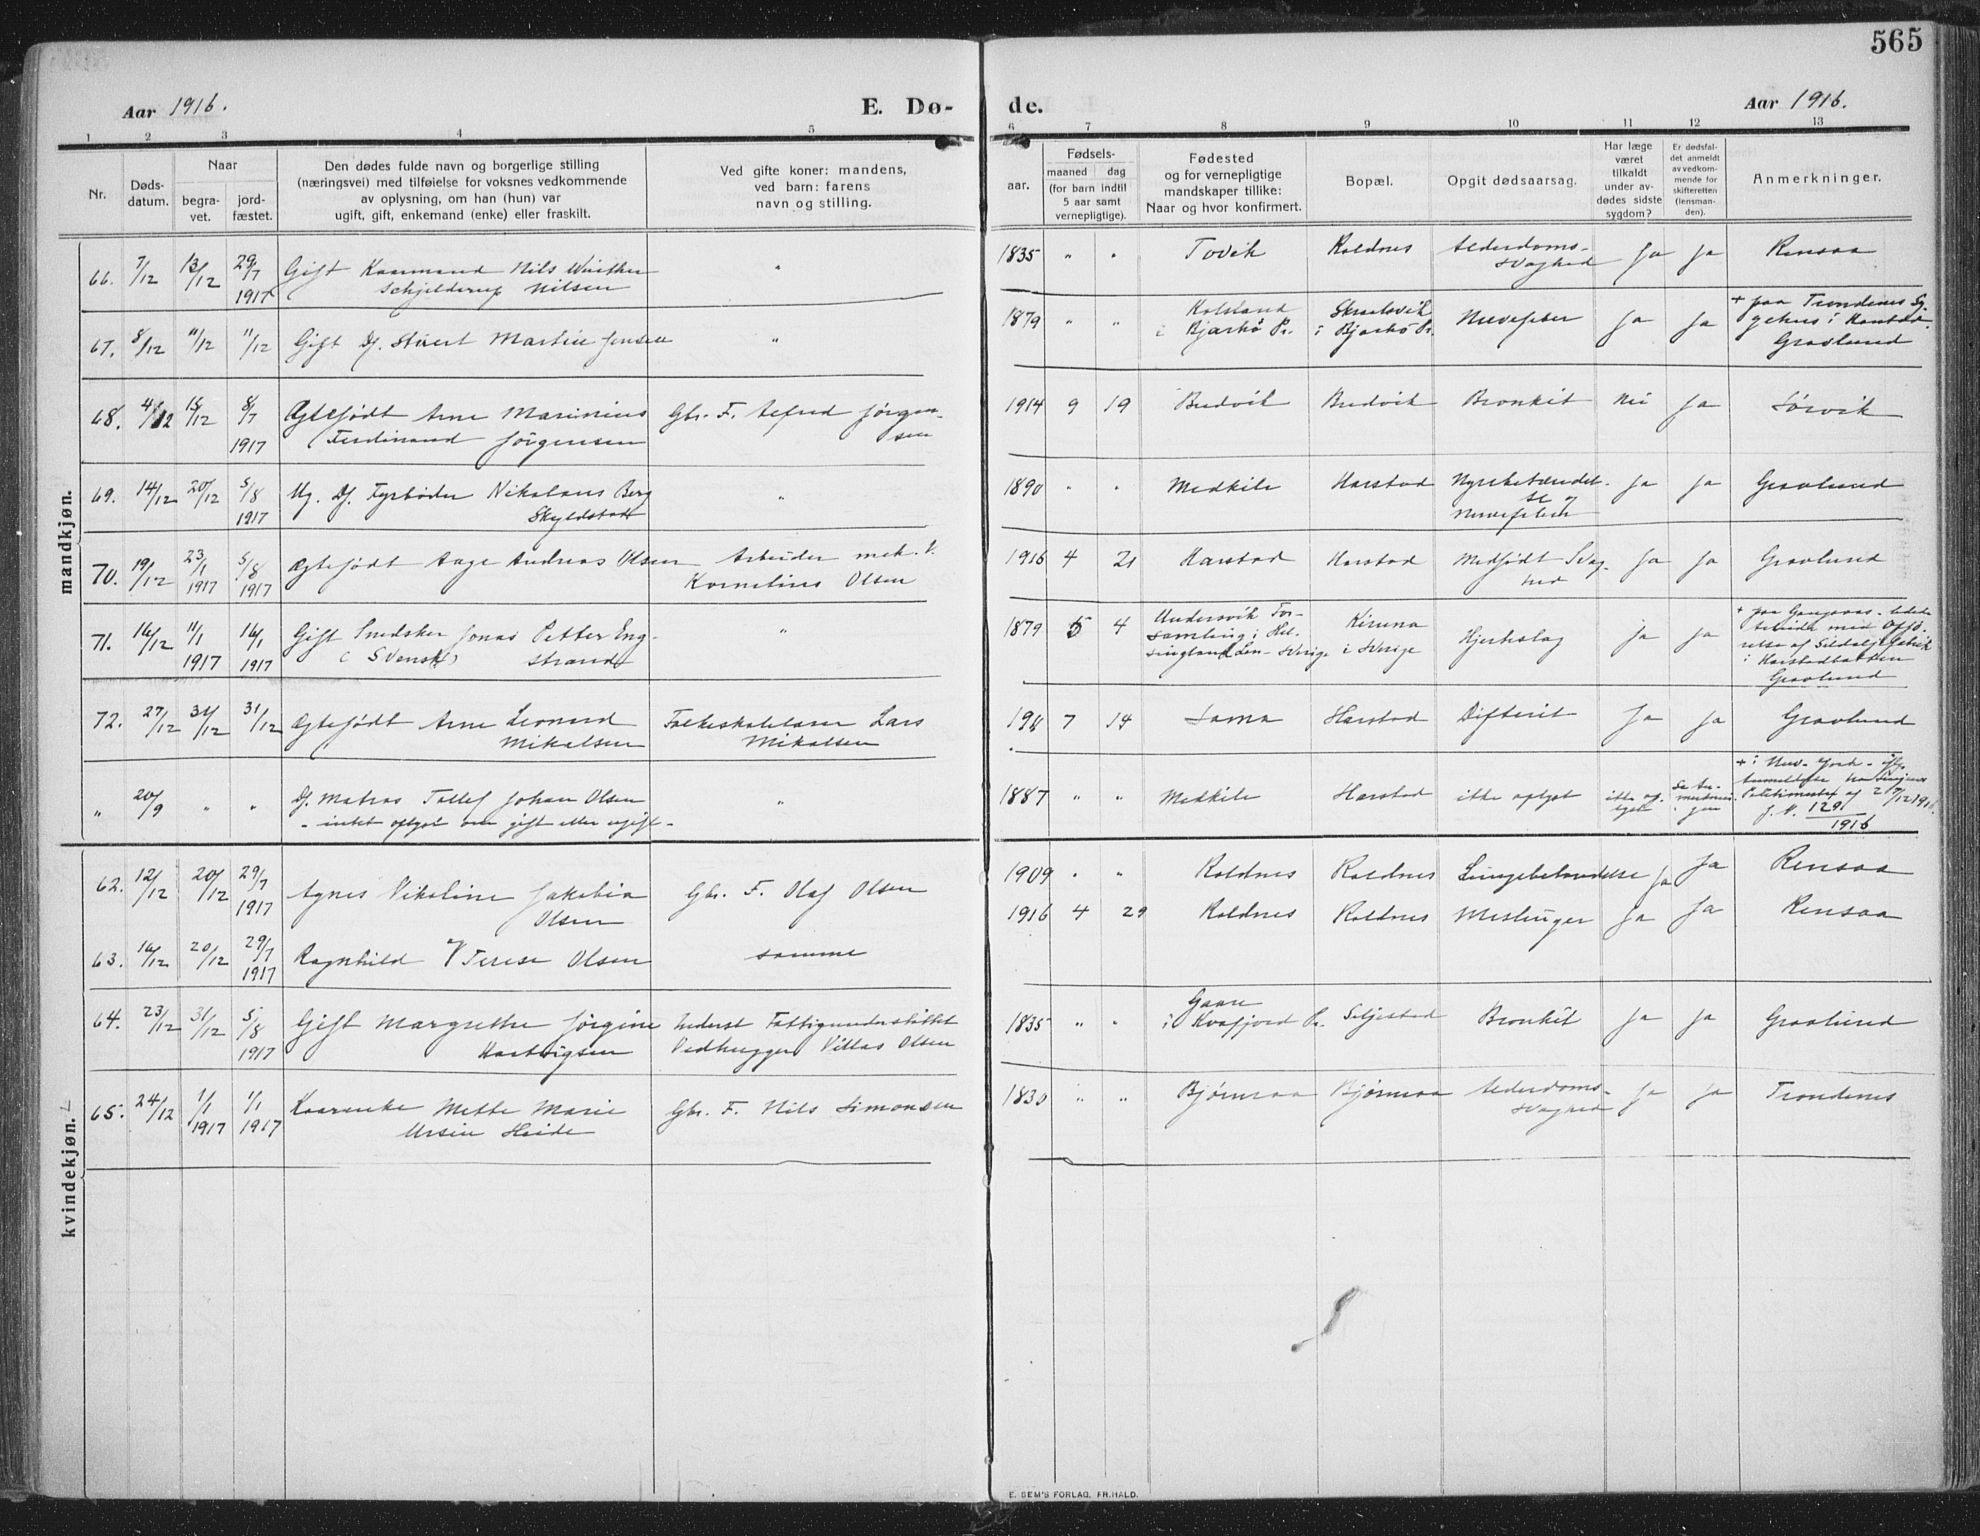 565
Aar 1916.
E. Dø-
de.
Aar 1916.
1 2 3 4 5 6 7 8 9 10 11 12 13
Nr.
Døds-
datum.
Naar
begra-
vet.
jord-
fæstet.
Den dødes fulde navn og borgerlige stilling
(næringsvei) med tilføielse for voksnes vedkommende
av oplysning, om han (hun) var
ugift, gift, enkemand (enke) eller fraskilt.
Ved gifte koner: mandens,
ved barn: farens
navn og stilling.
Fødsels-
aar.
maaned
dag
(for barn indtil
5 aar samt
vernepligtige).
Fødested
og for vernepligtige
mandskaper tillike:
Naar og hvor konfirmert.
Bopæl.
Opgit dødsaarsag.
Har læge
været
tilkaldt
under av-
dødes sidste
sygdom?
Er dødsfal-
det anmeldt
av vedkom-
mende for
skifteretten
(lensman-
den).
Anmerkninger.
mandkjøn.
66. 7/12 13/12 29/7 1917 Gift Kaarmand Nils Winther
Schjelderup Nilsen
" 1835 " " Tovik Roldnes Alderdoms-
svaghed Ja Ja Rensaa
67. 8/12 11/12 11/12 Gift Df. Stuert Martin Jensen " 1879 " "
i Bjarkø Pr. i Bjarkø Pr. Nervefeber Ja Ja + paa Trondenes Sy-
gehus i Harstad.
Gravlund
68. 4/12 15/12 8/7 1917 Ægtefødt Arne Marinius
Ferdinand Jørgensen
Gbr. F. Alfred Jørgen-
sen
1914 9 19 Bredvik Bredvik Bronkit Nei Ja Sørvik
69. 14/12 20/12 5/8 1917 Ug. Df. Fyrbøder Nikolaus Berg
Skyldstad
" 1890 " " Medkile Harstad Nyrebetændel-
se og
Nervefeber Ja Ja Gravlund
70. 19/12 23/1 1917 5/8 1917 Ægtefødt Aage Andreas Olsen
Arbeider mek. V.
Kornelius Olsen
1916 4 21 Harstad Harstad Medfødt Svag-
hed Ja Ja Gravlund
71. 16/12 11/1 1917 16/1 1917 Gift Snedker Jonas Petter Eng-
(Svensk) strand
" 1879 5 4 Undersvik For-
samling i Hel-
singland Len - Sverige
Kiruna
i Sverige Hjerteslag Ja Ja
i Harstadbotten
Gravlund
72. 27/12 31/12 31/12 Ægtefødt Arne Leonard
Mikalsen
Folkeskolelærer Lars
Mikalsen
1911 7 14 Sama Harstad Difterit Ja Ja Gravlund
" 20/9 " " Df. Matros Tollef Johan Olsen
- intet oplyst om gift eller ugift -
" 1887 " " Medkile Harstad ikke oplyst ikke op-
lyst Se An-
merknin-
gen + i New-York - iflg.
Politimester af 27/12 1916.
J. N. 1291
1916
kvindekjøn.
62. 12/12 20/12 29/7 1917 Agnes Nikoline Jakobia
Olsen
Gbr. F. Olaf Olsen 1909 " " Roldnes Roldnes Lungebetændelse Ja Ja Rensaa
63. 16/12 20/12 29/7 1917 Ragnhild Terese Olsen samme 1916 4 29 Roldnes Roldnes Meslinger Ja Ja Rensaa
64. 23/12 31/12 5/8 1917 Gift Margrethe Jørgine
Hartvigsen
Inderst Fattigunderstøttet
Vedhugger Villas Olsen
1835 " " Gaare
i Kvæfjord Pr. Seljestad Bronkit Ja Ja Gravlund
65. 24/12 1/1 1917 1/1 1917 Kaarenke Mette Marie
Ursin Heide
Gbr. F. Nils Simonsen 1830 " " Bjørnraa Bjørnraa Alderdoms-
svaghed Ja Ja Trondenes
E. SEM'S FORLAG, FR.HALD.